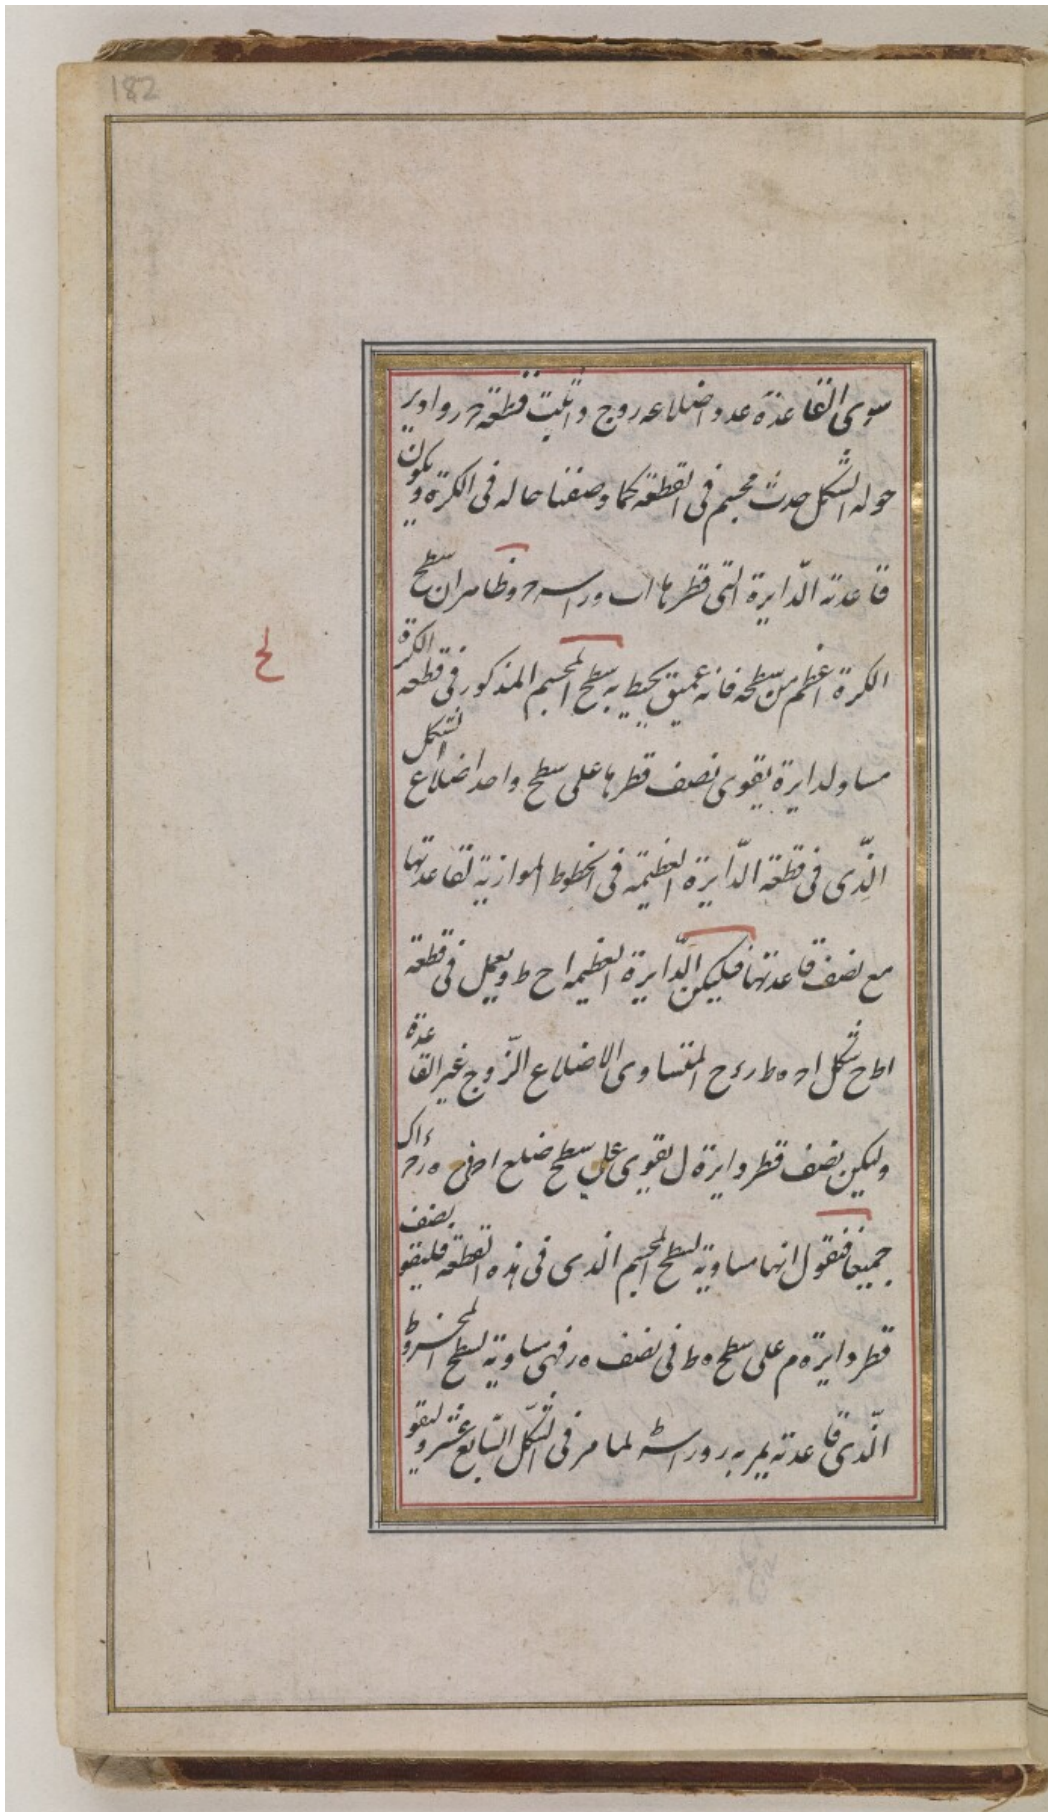 182
سوى القاعدة عدد اضلاعه زوج واثبت قطعة ح رو ادير
حوله الشكل حدث مجسم فى القطعة كما وصفنا حاله فى الكرة ويكون
قاعدته الدّايرة التى قطرها اب وراسه ح وظاهر ان سطح
الكرة اعظم من سطحه فانه عميق يحيط به سطح المجسم المذكور فى قطعة الكرة
لح
مساو لدايرة يقوى نصف قطرها على سطح واحد اضلاع الشكل
الذّى فى قطعة الدّايرة العظيمة فى الخطوط الموازية لقاعدتها
مع نصف قاعدتها فليكن الدّايرة العظيمه ا ح ط ويعمل فى قطعة
اط ح شكل ا ح ه ط ر ء ح المتساوى الاضلاع الزّوج غير القاعدة
وليكن نصف قطر دايرة ل يقوى على سطح ضلع ا ح فى ه ر ح ء اك
جميعا فنقول انها مساوية لسطح المجسم الذى فى هذه القطعة فليقو نصف
قطر دايرة م على سطح ه ط فى نصف ه ر فهى مساوية لسطح المخروط
الذّى قاعدته يمر به ر وراسه ط لما مر فى الشكل السّابع عشر وليقو